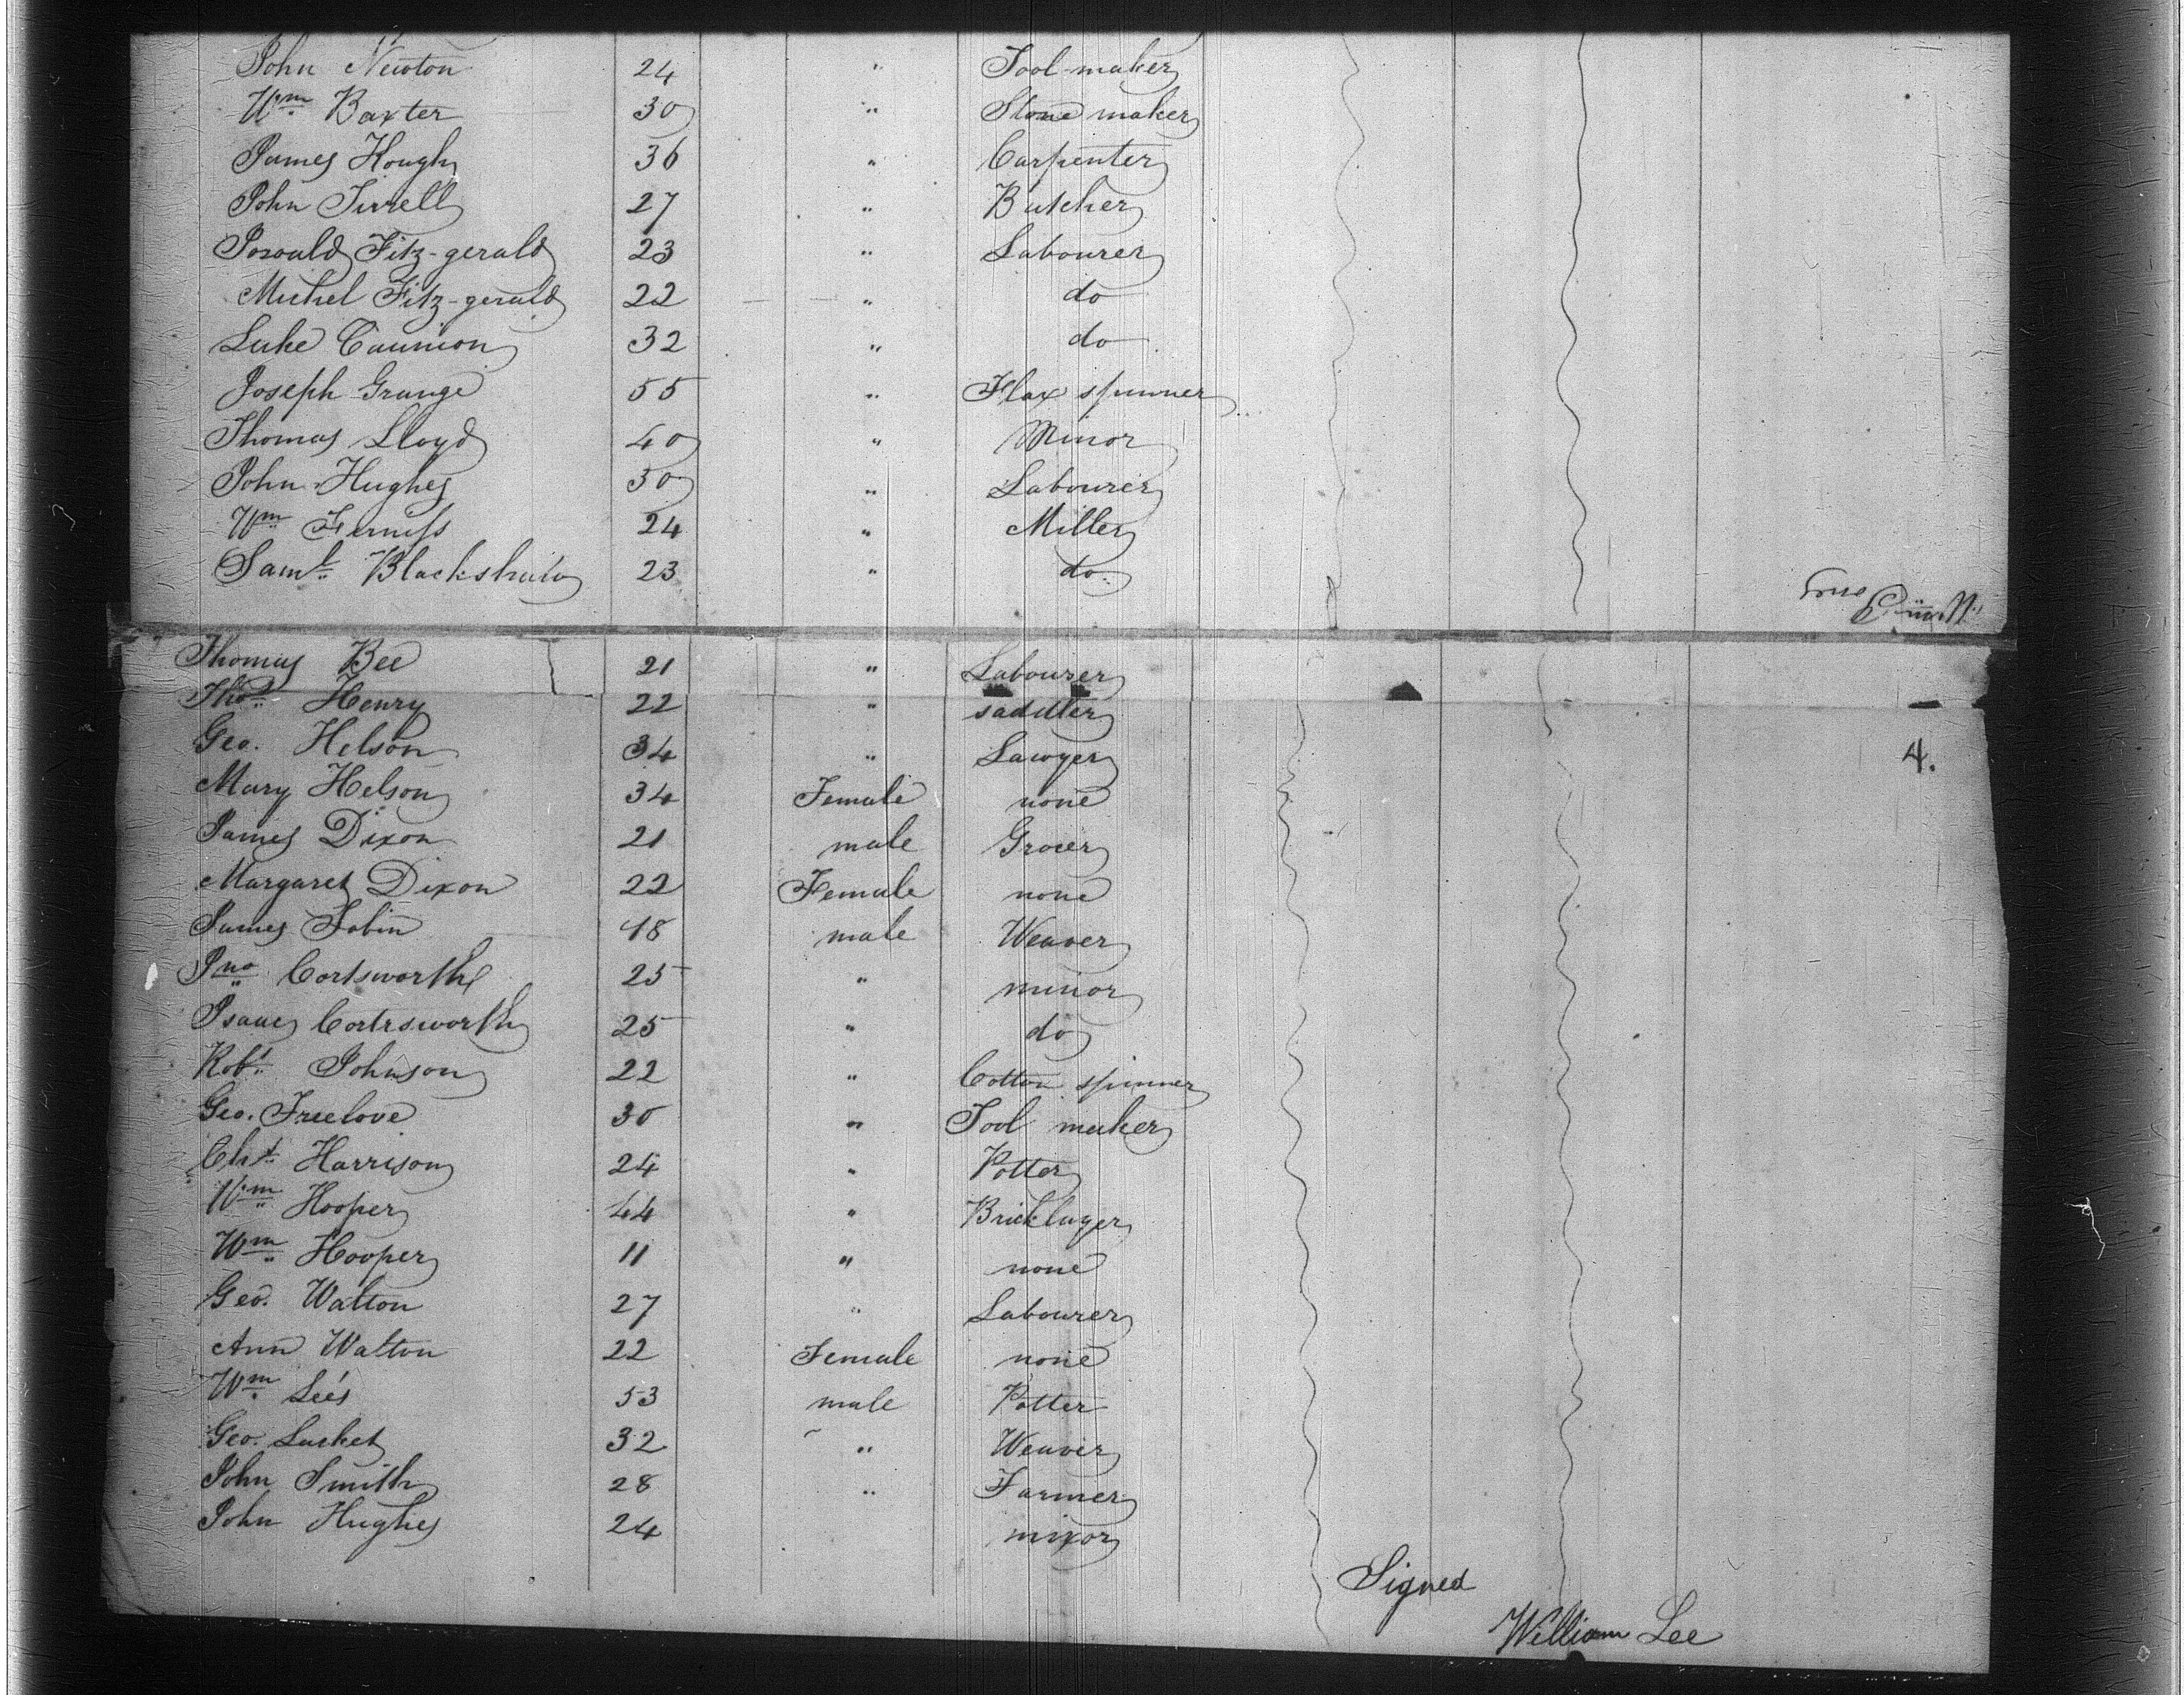 John Newton 24 " Tool-maker
Wm Baxter 30 " Stone maker
James Hough 36 " Carpenter
John Tirrell 27 " Butcher
Fitz-gerald 23 " Labourer
Michel Fitz-gerald 22 " do
Luke 32 " do
Joseph Grange 55 " Flax spinner
Thomas Lloyd 40 " Minor
John Hughes 30 " Labourer
Wm Ferniss 24 " Miller
Saml Blackshaw 23 " do.
Thomas Bee 21 " Labourer
Thos Henry 22 " saddler
Geo. Helson 34 " Sawyer
Mary Helson 34 Female none
James Dixon 21 male Grocer
Margaret Dixon 22 Female none
James Tobin 48 male Weaver
Jno Cortsworth 25 " minor
Isaac Cortrsworth 25 " do
Robt Johnson 22 " Cotton spinner
Geo. Freelove 30 " Tool maker
Cht Harrison 24 " Potter
Wm Hooper 44 " Bricklayer
Wm Hooper 11 " none
Geo. Walton 27 " Labourer
Ann Walton 22 Female none
Wm Lees 53 male Potter
Geo. Lucket 32 " Weaver
John Smith 28 " Farmer
John Hughes 24 minor
4.
Signed
William Lee